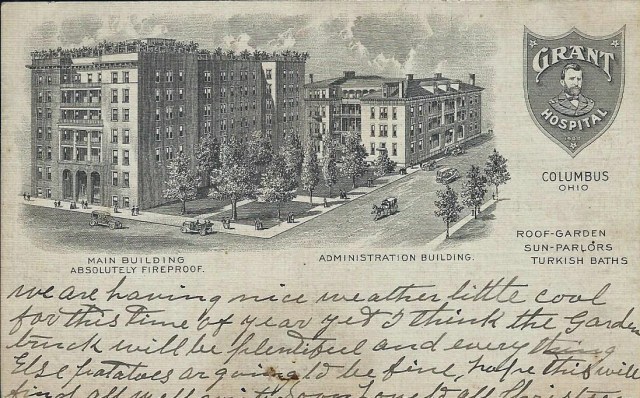 GRANT
HOSPITAL
COLUMBUS
OHIO
ROOF-GARDEN
SUN-PARLORS
TURKISH BATHS
MAIN BUILDING
ABSOLUTELY FIREPROOF.
ADMINISTRATION BUILDING.
we are having nice weather little cool
for this time of year yet I think the Garden
truck will be plentiful and every thing
Else potatoes ar going to be fine, hope this will
find all well